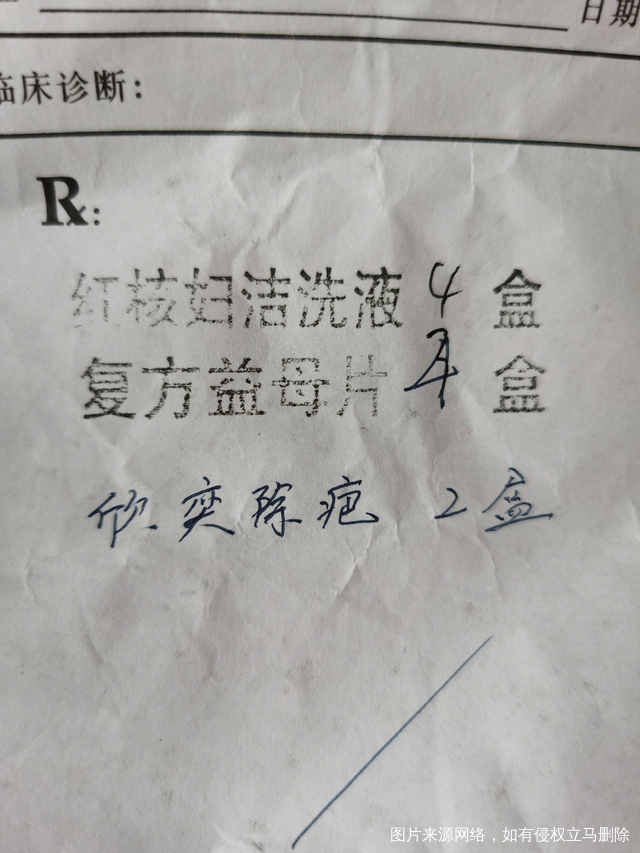 日期
临床诊断:
Rx:
红核妇洁洗液 4 盒
复方益母片 盒
欣奕除疤 2盒
图片来源网络，如有侵权立马删除